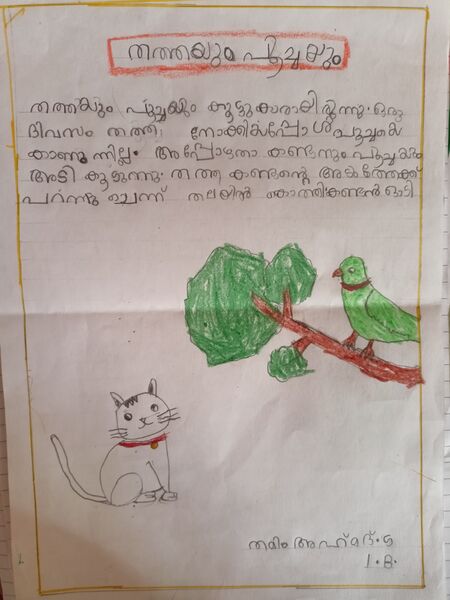 തത്തയും പൂച്ചയും
തത്തയും പൂച്ചയും കൂട്ടുകാരായിരുന്നു. ഒരു
ദിവസം തത്ത നോക്കിയപ്പോൾ പൂച്ചയെ
കാണുന്നില്ല. അപ്പോഴതാ കണ്ടനും പൂച്ചയും
അടി കൂടുന്നു. തത്ത കണ്ടന്റെ അടുത്തേക്ക്
പറന്നു ചെന്ന് തലയിൽ കൊത്തി. കണ്ടൻ ഓടി
തമീം അഹ്മദ്. G
1. B.